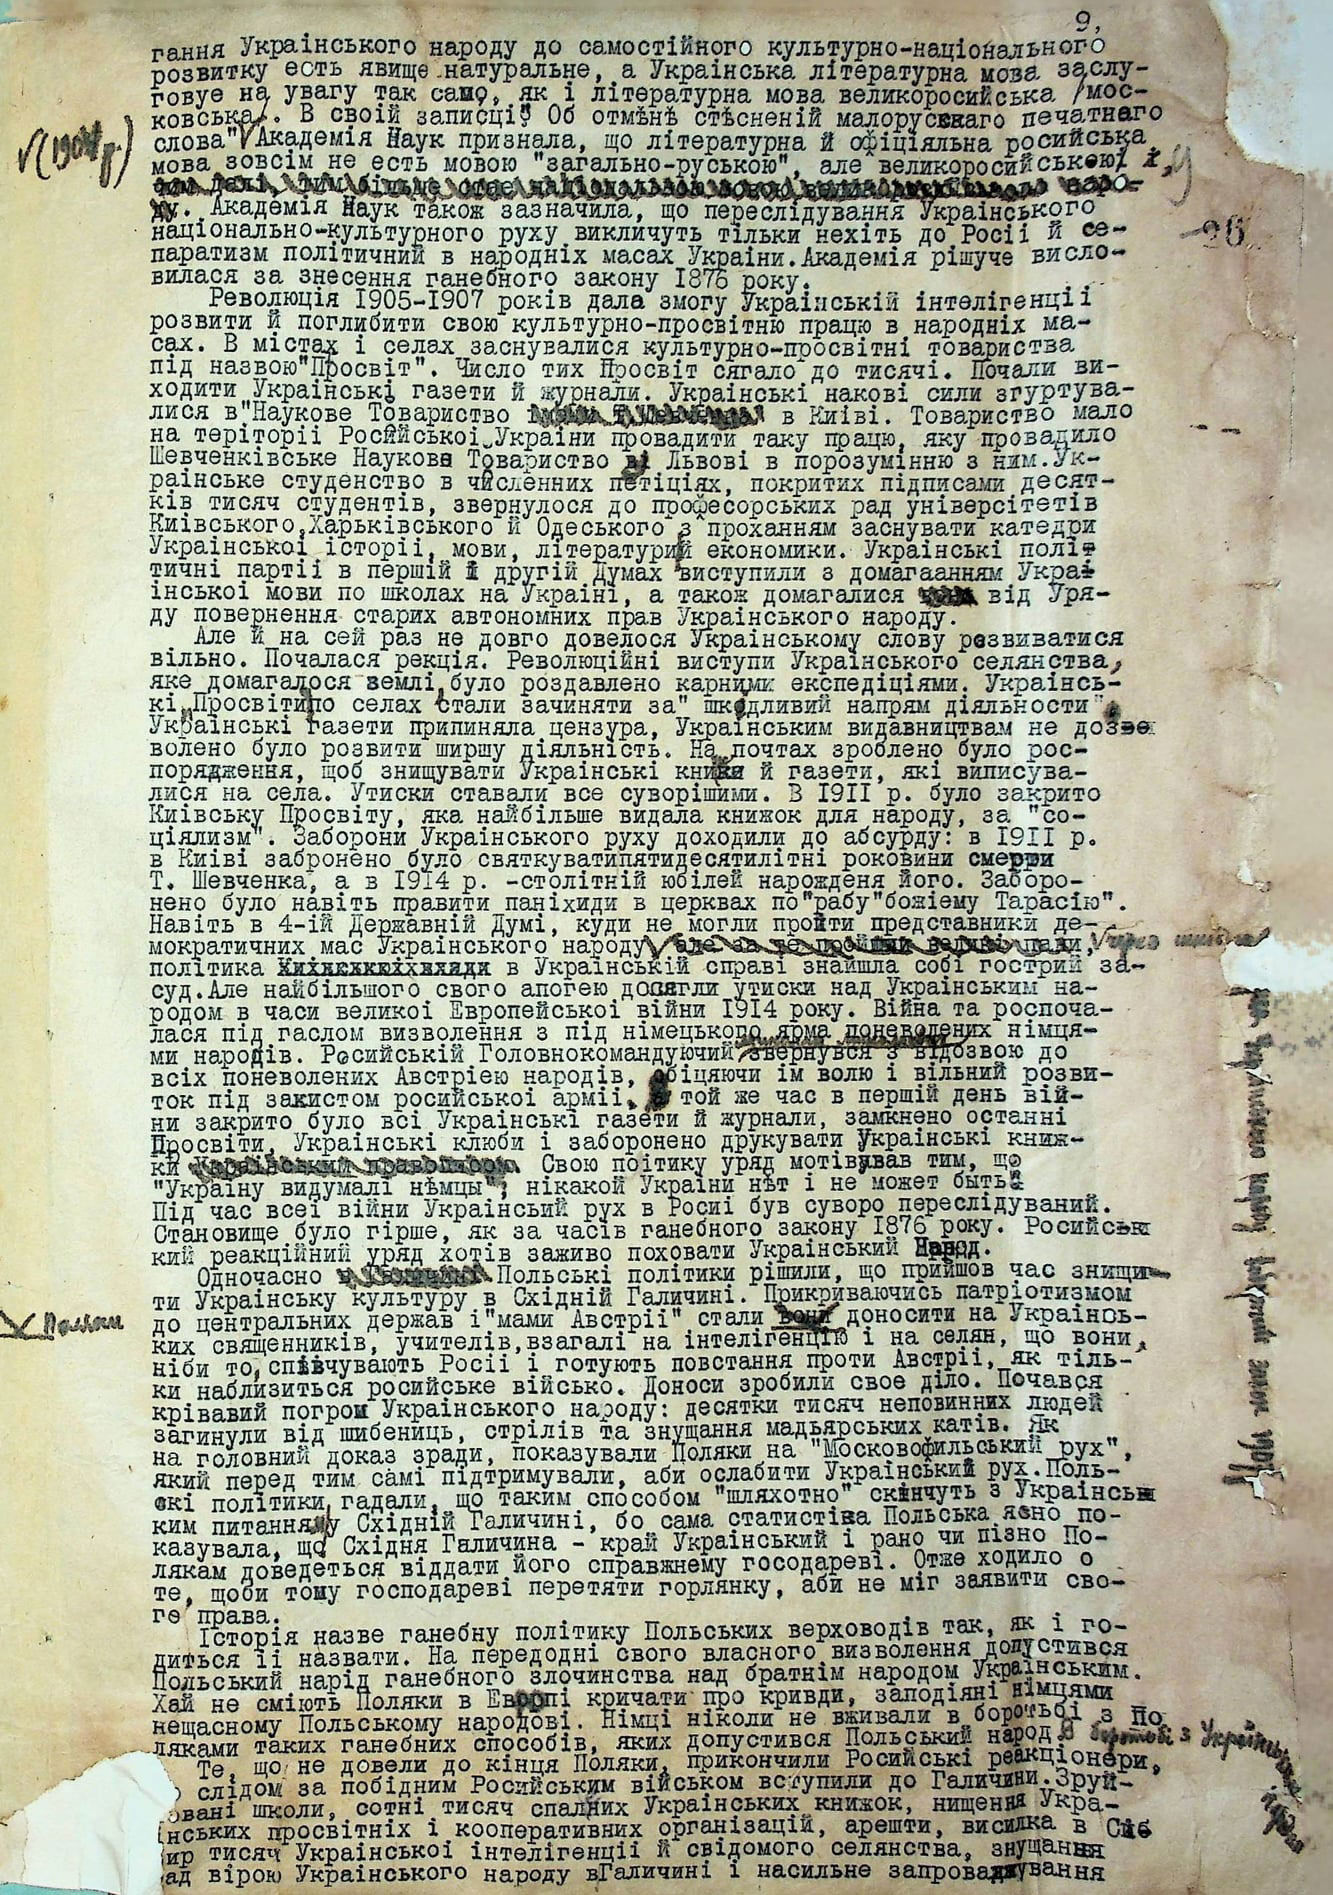 9,
гання Украінського народу до самостійного культурно-національного
розвитку есть явище натуральне, а Украінська літературна мова заслу-
говуе на увагу так само, як і літературна мова великоросийська /мос-
ковська/. В своій записці" Об отмѣнѣ стѣсненій малорускаго печатнаго
√(1904 р.)
слова"√Академія Наук признала, що літературна й офіціяльна росийська
мова зовсім не есть мовою "загально-руською", але великоросийською
далі, тим більше стае національною мовою великоруського наро-
ду. Академія Наук також зазначила, що переслідування Украінського
національно-культурного руху викличуть тільки нехіть до Росіі й се-
26
паратизм політичний в народніх масах Украіни.Академія рішуче висло-
вилася за знесення ганебного закону 1876 року.
Революція 1905-1907 років дала змогу Украінській інтелігенціі
розвити й поглибити свою культурно-просвітню працю в народніх ма-
сах. В містах і селах заснувалися культурно-просвітні товариства
під назвою"Просвіт". Число тих Просвіт сягало до тисячі. Почали ви-
ходити Украінські газети й журнали. Украінські накові сили згуртува-
лися в"Наукове Товариство імени Т.Шевченка" в Киіві. Товариство мало
на теріторіі Росийськоі Украіни провадити таку працю, яку провадило
Шевченківське Наукове Товариство ві Львові в порозумінню з ним.Ук-
раінське студенство в численних петіціях, покритих підписами десят-
ків тисяч студентів, звернулося до професорських рад універсітетів
Киівського,Харьківського й Одеського з проханням заснувати катедри
Украінськоі історіі, мови, літератури й економики. Украінські полі-
тичні партіі в першій і другій Думах виступили з домагаанням Украі
інськоі мови по школах на Украіні, а також домагалися від Уря-
ду повернення старих автономних прав Украінського народу.
Але й на сей раз не довго довелося Украінському слову розвиватися
вільно. Почалася рекція. Революційні виступи Украінського селянства,
яке домагалося землі,було роздавлено карними експедіціями. Украінсь-
кі Просвіти по селах стали зачиняти за" шкодливий напрям діяльности"
Украінські газети припиняла цензура, Украінським видавництвам не дозве
волено було розвити ширшу діяльність. На почтах зроблено було рос-
порядження, щоб знищувати Украінські книжки й газети, які виписува-
лися на села. Утиски ставали все суворішими. В 1911 р. було закрито
Киівську Просвіту, яка найбільше видала книжок для народу, за "со-
ціялизм". Заборони Украінського руху доходили до абсурду: в 1911 р.
в Киіві забронено було святкуватипятидесятилітні роковини смерти
Т. Шевченка, а в 1914 р. -столітній юбілей нарожденя його. Заборо-
нено було навіть правити паніхиди в церквах по"рабу"божіему Тарасію".
Навіть в 4-ій Державній Думі, куди не могли пройти представники де-
мократичних мас Украінського народу√
політика в Украінській справі знайшла собі гострий за-
суд.Але найбільшого свого апогею досягли утиски над Украінським на-
родом в часи великоі Европейськоі війни 1914 року. Війна та роспоча-
лася під гаслом визволення з під німецького ярма поневолених німця-
ми народів. Росийській Головнокомандуючий звернувся з відозвою до
всіх поневолених Австріею народів, обіцяючи ім волю і вільний розви-
ток під захистом росийськоі арміі. в той же час в перший день вій-
ни закрито було всі Украінські газети й журнали, замкнено останні
Просвіти, Украінські клюби і заборонено друкувати Украінські книж-
ки Украінським правописом. Свою поітику уряд мотівував тим, що
"Украіну видумалі нѣмцы"; нікакой Украіни нѣт і не может быть"
Під час всеі війни Украінський рух в Росиі був суворо переслідуваний.
Становище було гірше, як за часів ганебного закону 1876 року. Росийськ
кий реакційний уряд хотів заживо поховати Украінський Народ.
Одночасно в Галичині Польські політики рішили, що прийшов час знищи-
ти Украінську культуру в Східній Галичині. Прикриваючись патріотизмом
√ Поляки
до центральних держав і"мами Австріі" стали вони доносити на Украінсь-
ких священників, учителів,взагалі на інтелігенцію і на селян, що вони,
ніби то,співчувають Росіі і готують повстання проти Австріі, як тіль-
ки наблизиться росийське військо. Доноси зробили свое діло. Почався
крівавий погром Украінського народу: десятки тисяч неповинних людей
загинули від шибениць, стрілів та знущання мадьярських катів. Як
на головний доказ зради, показували Поляки на "Московофильський рух",
який перед тим самі підтримували, аби ослабити Украінський рух.Поль-
ські політики гадали, що таким способом "шляхотно" скінчуть з Украінськ
ким питанням у Східній Галичині, бо сама статистіка Польська ясно по-
казувала, що Східня Галичина - край Украінський і рано чи пізно По-
лякам доведеться віддати його справжнему госодареві. Отже ходило о
те, щоби тому господареві перетяти горлянку, аби не міг заявити сво-
ге права.
Історія назве ганебну політику Польських верховодів так, як і го-
диться іі назвати. На передодні свого власного визволення допустився
Польський нарід ганебного злочинства над братнім народом Украінським.
Хай не сміють Поляки в Европі кричати про кривди, заподіяні німцями
нещасному Польському народові. Німці ніколи не вживали в боротьбі з По
ляками таких ганебних способів, яких допустився Польський народ в боротьбі з
Те, що не довели до кінця Поляки, прикончили Росийські реакціонери,
слідом за побідним Росийським військом вступили до Галичини.Зруй-
овані школи, сотні тисяч спалних Украінських книжок, нищення Укра-
інських просвітніх і кооперативних організацій, арешти, висилка в Сіб
ир тисяч Украінськоі інтелігенціі й свідомого селянства, знущання
ад вірою Украінського народу вГаличині і насильне запроваджування